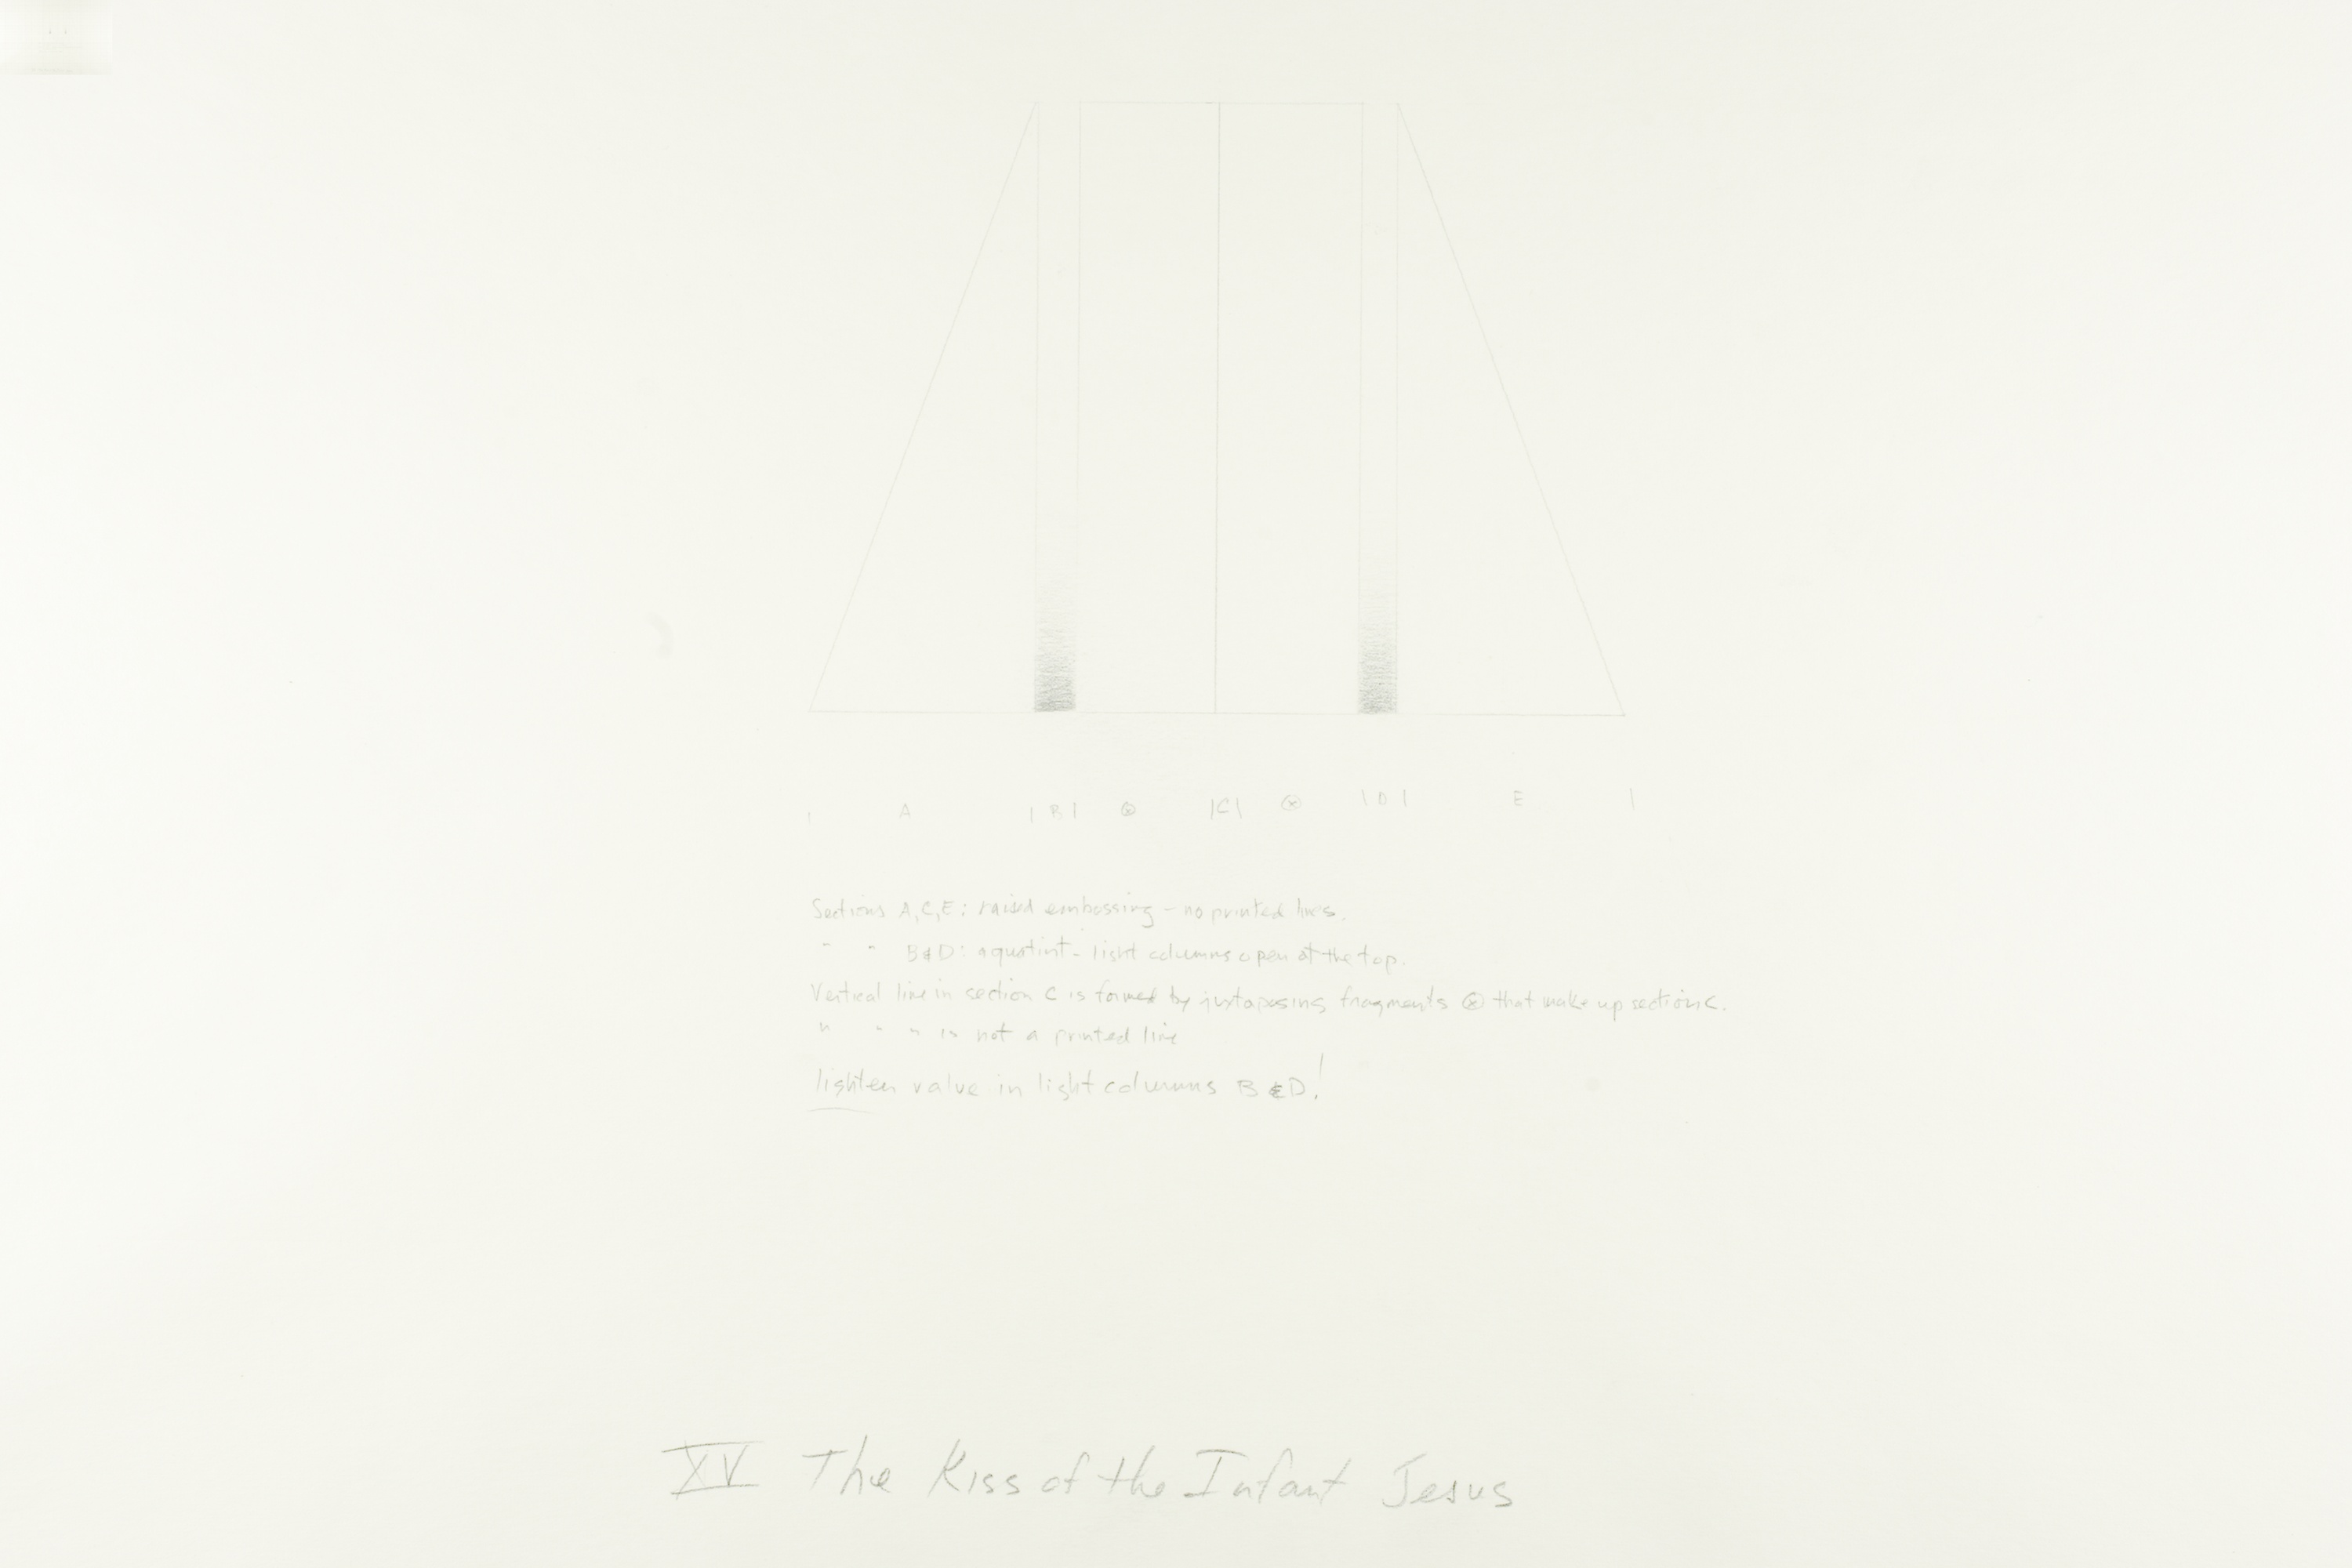 | A | B | ⊗ |C| ⊗ | D | E |
Sections A, C, E: raised embossing - no printed lines.
" " B & D: aquatint - light columns open at the top.
Vertical line in section C is formed by juxtaposing fragments ⊗ that make up section C.
" " " is not a printed line
lighten value in light columns B & D!
XV The Kiss of the Infant Jesus